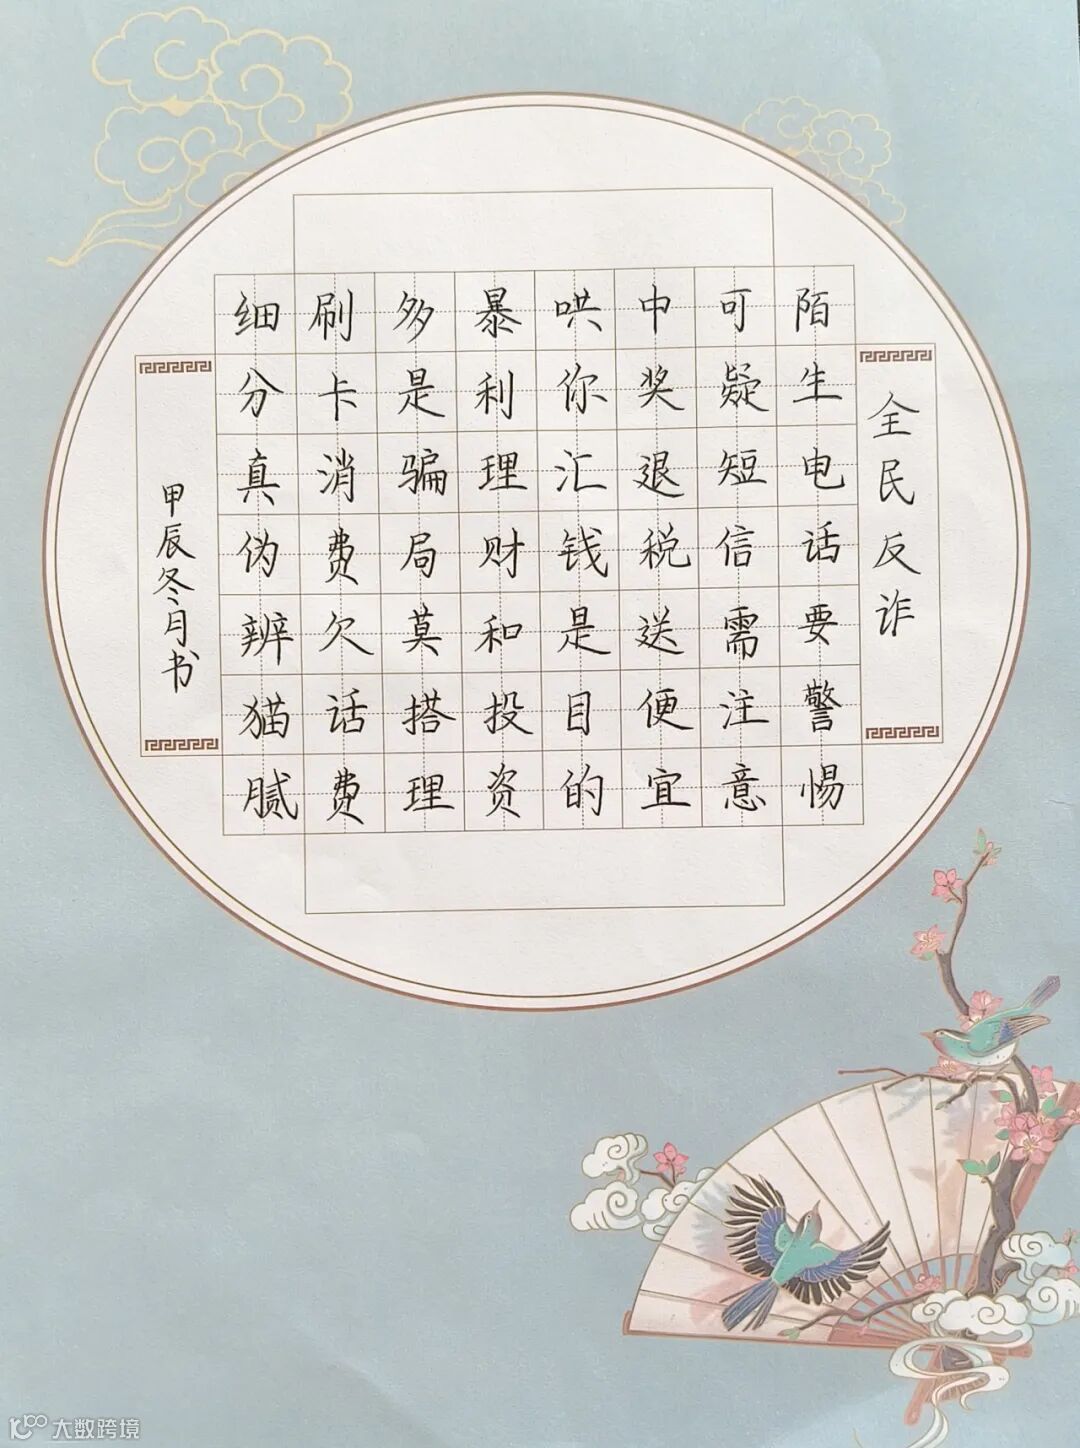 全民反诈
陌生电话要警惕
可疑短信需注意
中奖退税送便宜
哄你汇钱是目的
暴利理财和投资
多是骗局莫搭理
刷卡消费欠话费
细分真伪辨猫腻
甲辰冬月书
大数跨境